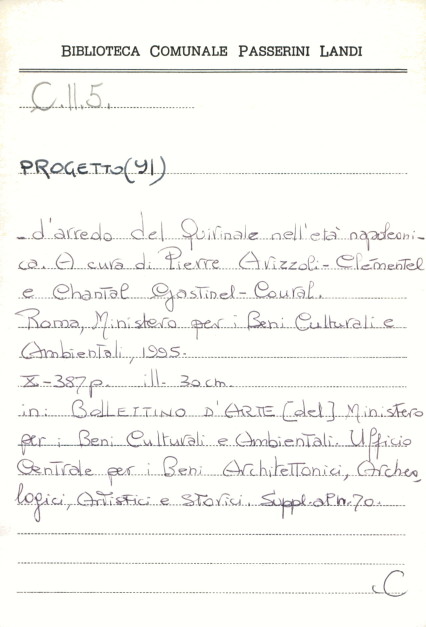 BIBLIOTECA COMUNALE PASSERINI LANDI
C.II.5.
PROGETTO(YI)
- d'arredo del Quirinale nell'età napoleoni-
ca. A cura di Pierre Arizzoli-Clémentel
e Chantal Gastinel-Coural.
Roma, Ministero per i Beni Culturali e
Ambientali, 1995.
X-387p. ill. 30cm.
in: BOLLETTINO D'ARTE [del] Ministero
per i Beni Culturali e Ambientali. Ufficio
Centrale per i Beni Architettonici, Archeo
logici, Artistici e Storici. Suppl. al n. 70.
C